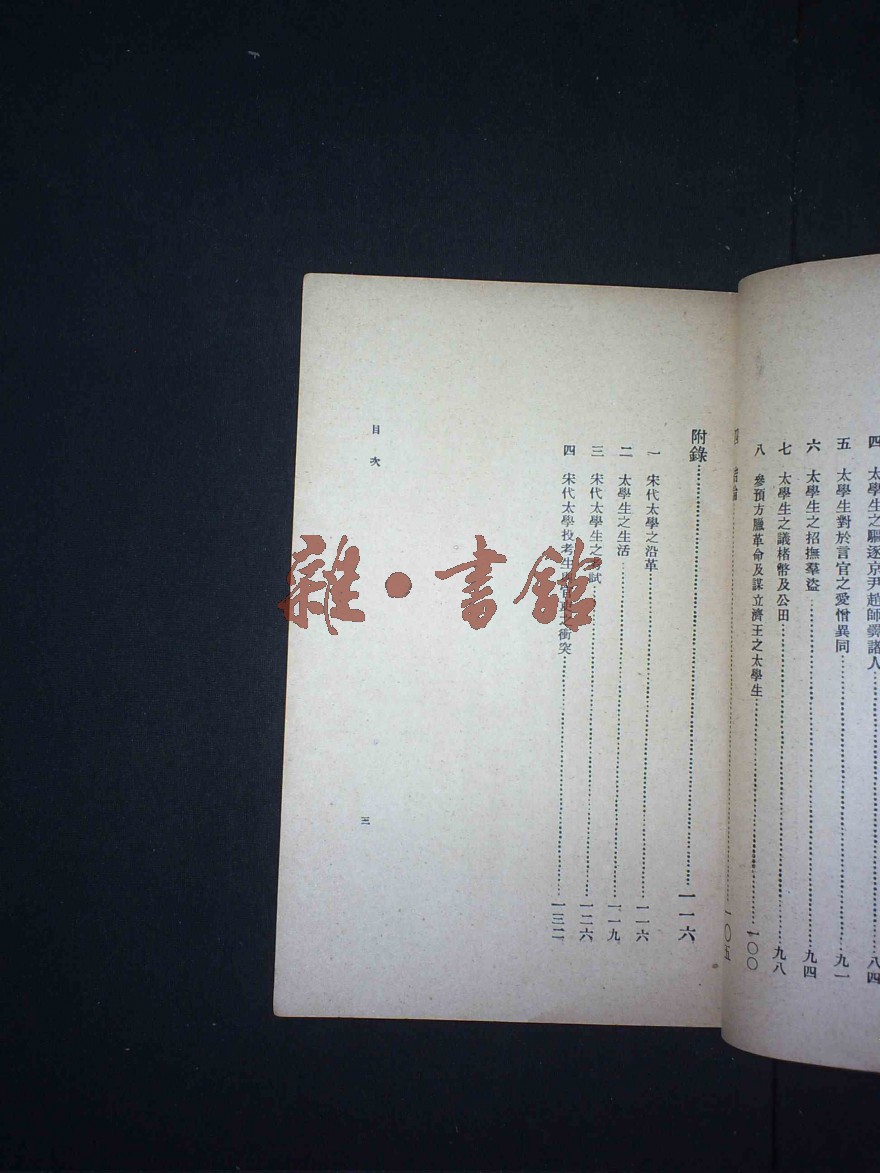 四 太學生之驅逐京尹趙師𢍰諸人……八四
五 太學生對於言官之愛憎異同……九一
六 太學生之招撫羣盜……九四
七 太學生之議楮幣及公田……九八
八 參預方臘革命及謀立濟王之太學生……一〇〇
四 結論……一〇五
附錄……一一六
一 宋代太學之沿革……一一六
二 太學生之生活……一一九
三 宋代太學生之考試……一二六
四 宋代太學投考生與官吏之衝突……一三二
目次
三
雜·書館